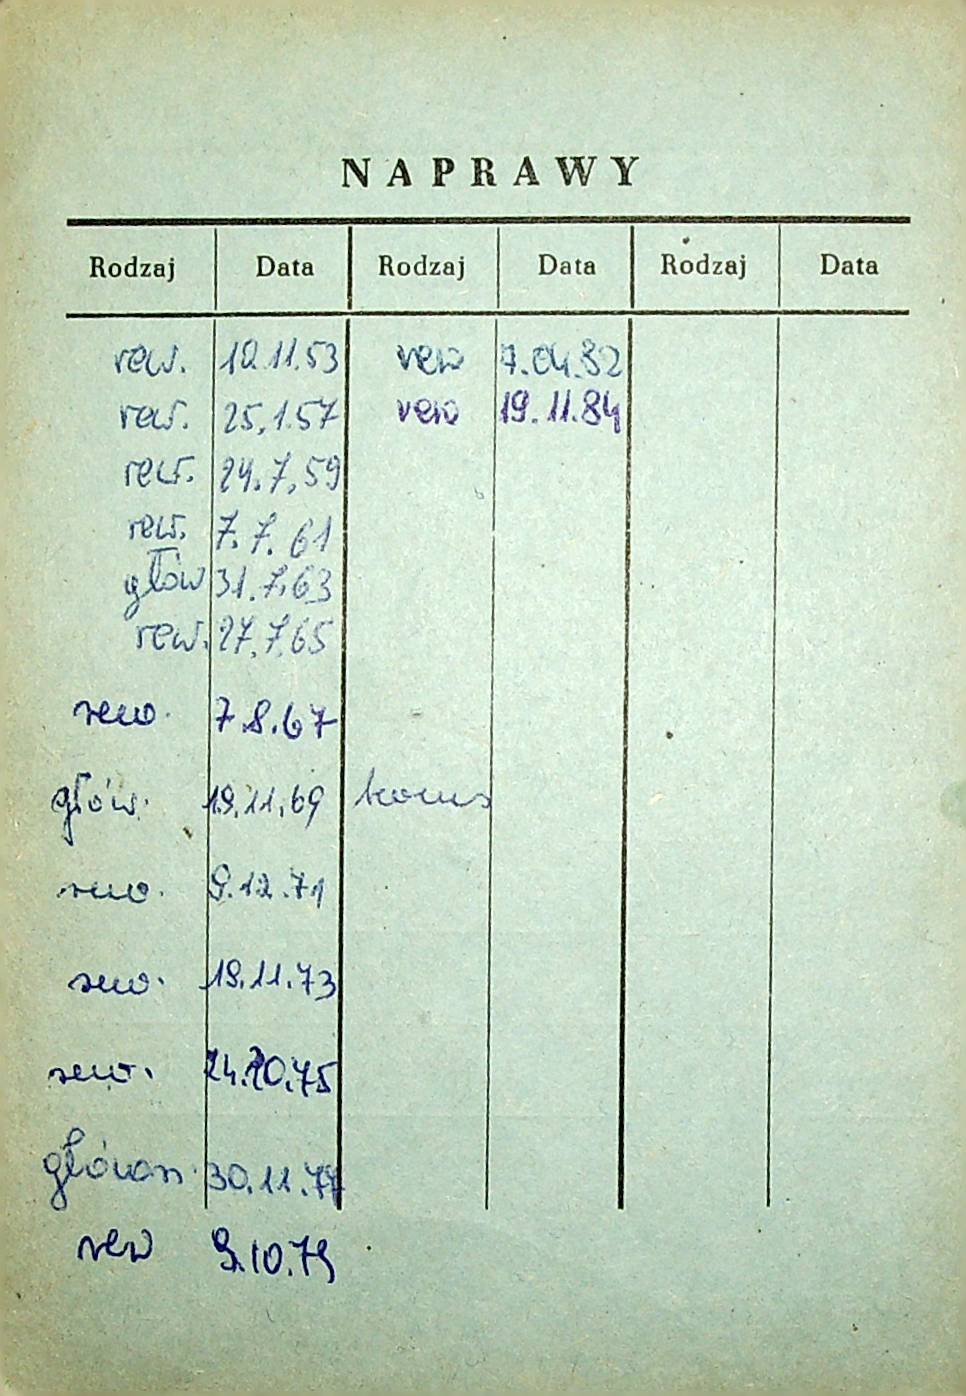 NAPRAWY
Rodzaj Data Rodzaj Data Rodzaj Data
rew. 10.11.53 rew 7.04.82
rew. 25.1.57 rew 19.11.84
rew. 24.7.59
rew. 7.7.61
głów 31.7.63
rew. 27.7.65
rew. 7.8.67
głów. 19.11.69
rew. 9.12.71
rew. 19.11.73
rew. 24.10.75
główn. 30.11.77
rew 9.10.79